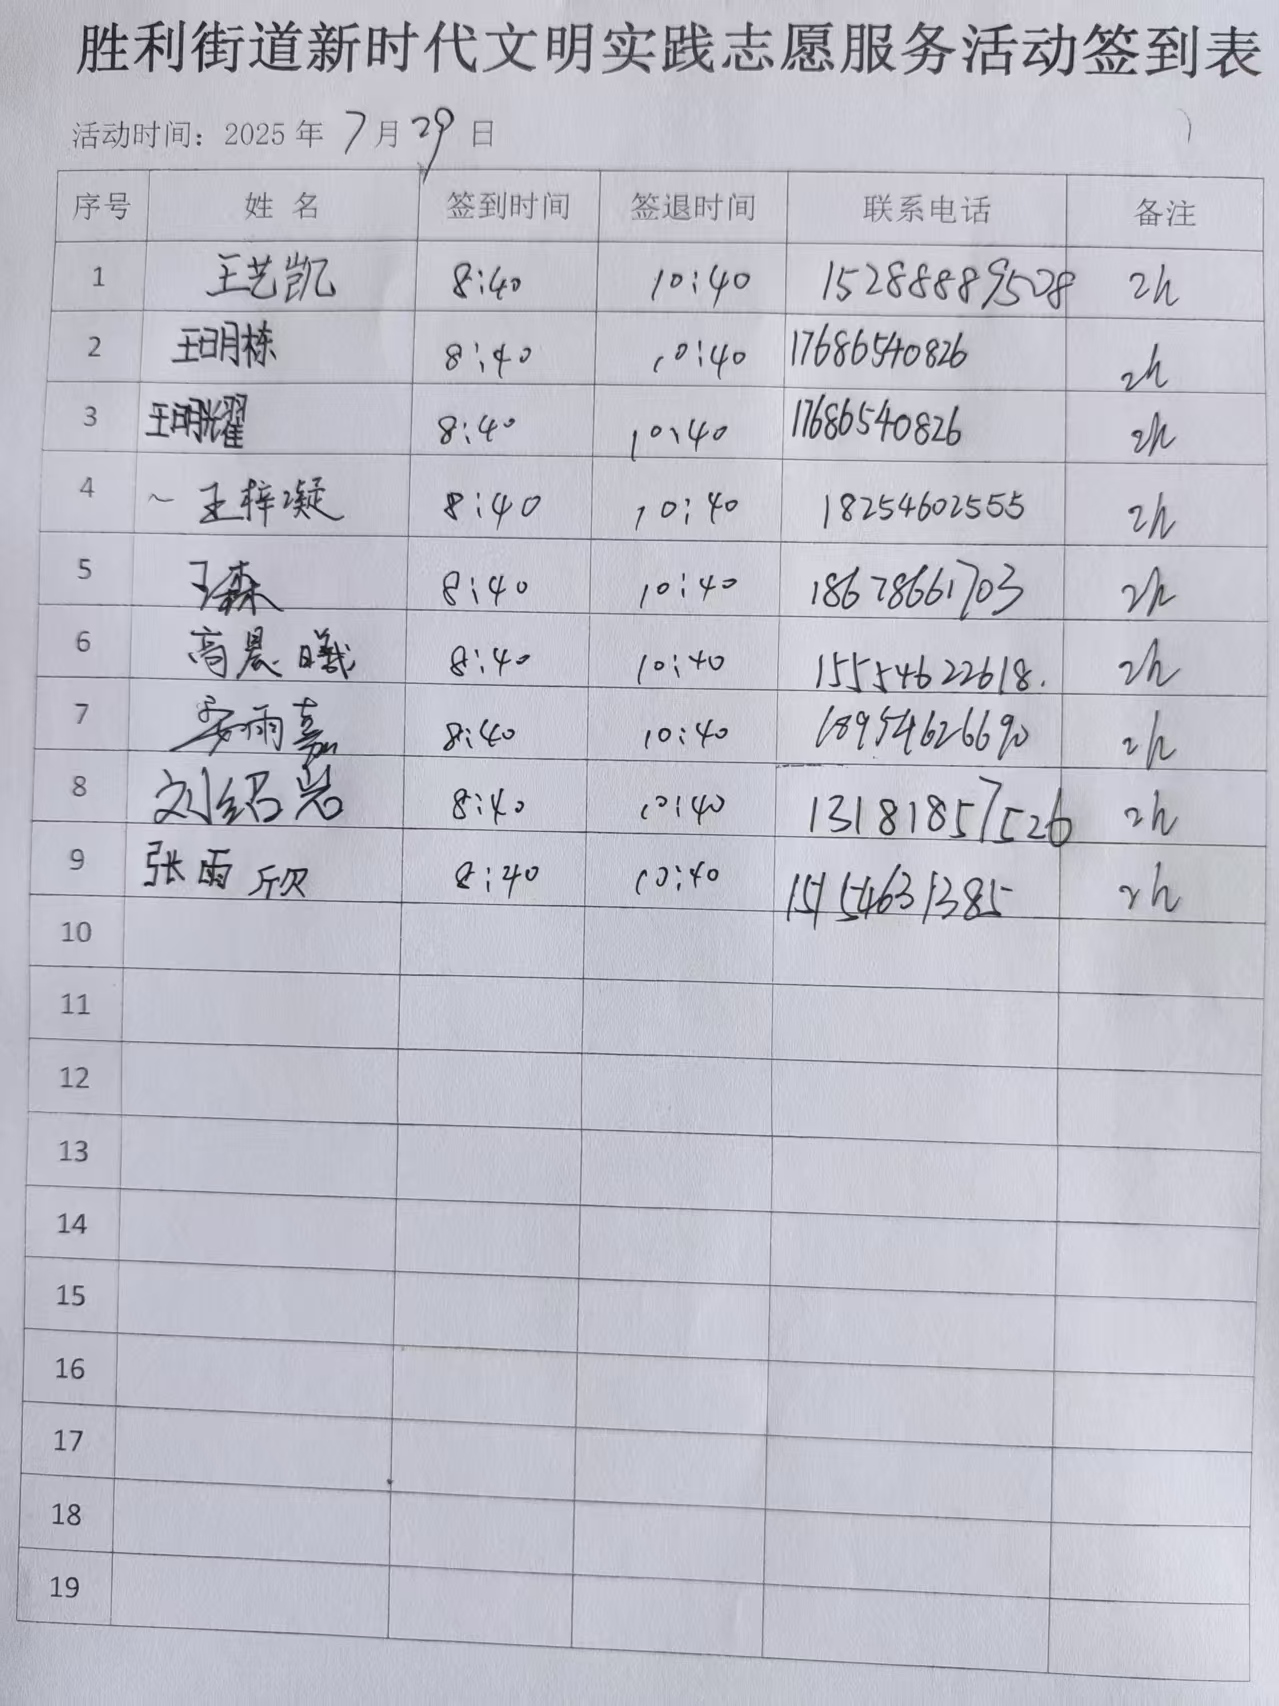 胜利街道新时代文明实践志愿服务活动签到表
活动时间：2025 年 7 月 29 日
序号 姓 名 签到时间 签退时间 联系电话 备注
1 王艺凯 8:40 10:40 15288889508 2h
2 王明栋 8:40 10:40 17686540826 2h
3 王明耀 8:40 10:40 17686540826 2h
4 王梓凝 8:40 10:40 18254602555 2h
5 王森 8:40 10:40 18678661703 2h
6 高晨曦 8:40 10:40 15554622618. 2h
7 安雨嘉 8:40 10:40 18954626690 2h
8 刘绍岩 8:40 10:40 13181857526 2h
9 张雨欣 8:40 10:40 15154631385 2h
10
11
12
13
14
15
16
17
18
19